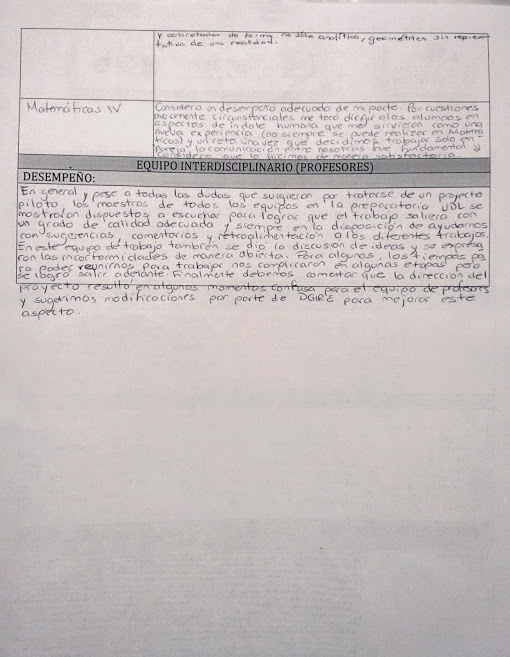 y concretados de forma no sólo analítica, geométrica sin represen-
tativo de una realidad.
Matemáticas IV
Considero un desempeño adecuado de mi parte. Por cuestiones
meramente circunstanciales me tocó dirigir a los alumnos en
aspectos de índole humana que me sirvieron como una
nueva experiencia (no siempre se puede realizar en Matemá
ticas) y un reto. Una vez que decidimos trabajar sólo en
pareja, la comunicación entre nosotras fue fundamental y
considero que lo hicimos de manera satisfactoria.
EQUIPO INTERDISCIPLINARIO (PROFESORES)
DESEMPEÑO:
En general y pese a todas las dudas que surgieron por tratarse de un proyecto
piloto, los maestros de todos los equipos en la preparatoria UDL se
mostraron dispuestos a escuchar para lograr que el trabajo saliera con
un grado de calidad adecuado y siempre en la disposición de ayudarnos
con sugerencias, comentarios y retroalimentación a los diferentes trabajos.
En este equipo de trabajo también se dio la discusión de ideas y se expresa
ron las inconformidades de manera abierta. Para algunos, los tiempos pa
ra poder reunirnos para trabajar nos complicaron en algunas etapas pero
se logró salir adelante. Finalmente debemos comentar que la dirección del
proyecto resultó en algunos momentos confusa para el equipo de profesores
y sugerimos modificaciones por parte de DGIRE para mejorar este
aspecto.